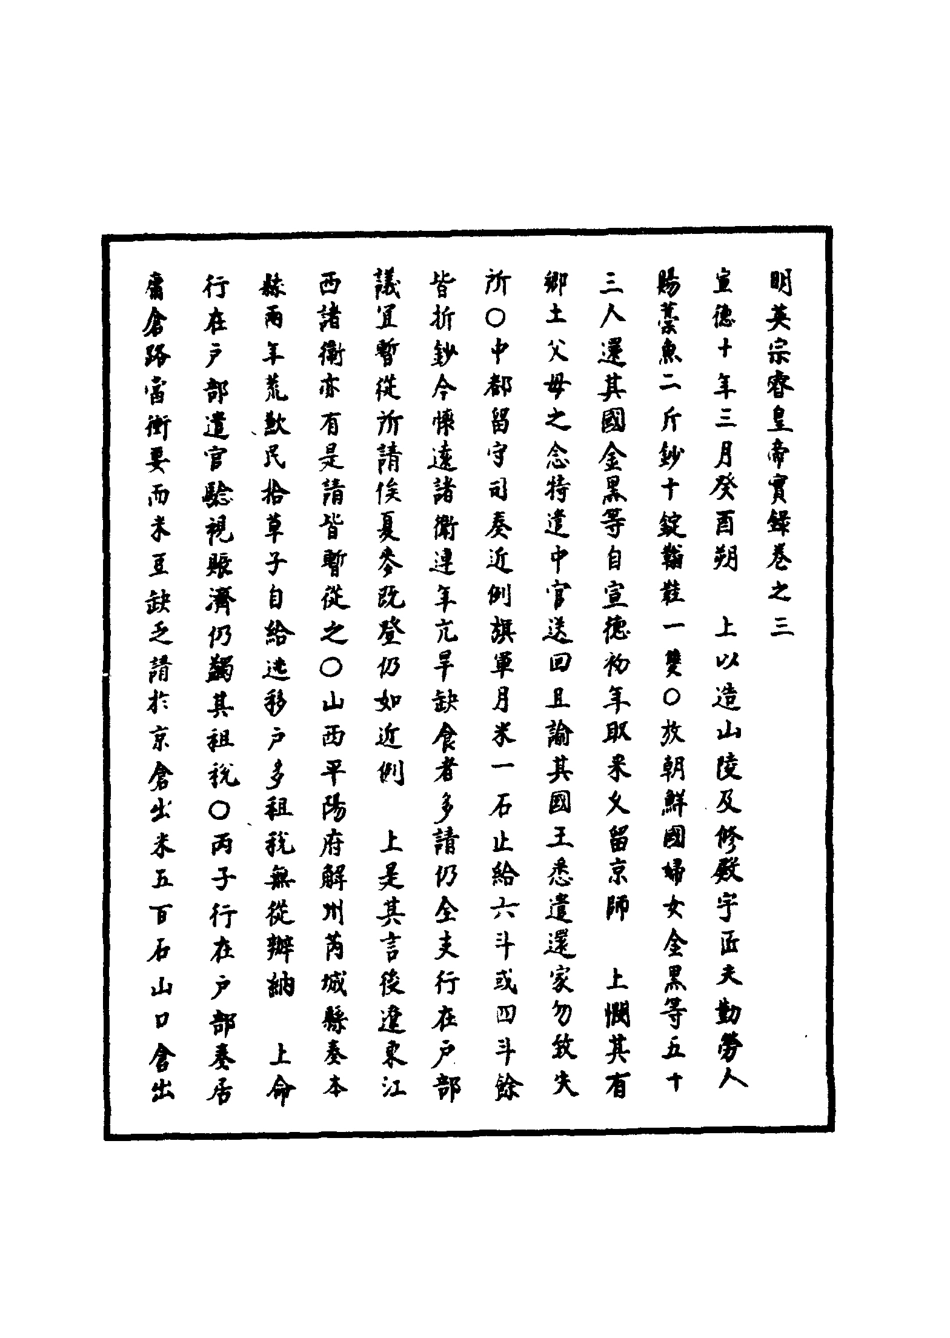 明英宗睿皇帝實錄卷之三
宣德十年三月癸酉朔　上以造山陵及修殿宇匠夫勤勞人
賜薧魚二斤鈔十錠䩺鞋一雙○放朝鮮國婦女金黑等五十
三人還其國金黑等自宣德初年取來久留京師　上憫其有
鄉土父母之念特遣中官送回且諭其國王悉遣還家勿致失
所○中都留守司奏近例旗軍月米一石止給六斗或四斗餘
皆折鈔今懷遠諸衛連年亢旱缺食者多請仍全支行在戶部
議宜暫從所請俟夏麥既登仍如近例　上是其言後遼東江
西諸衛亦有是請皆暫從之○山西平陽府解州芮城縣奏本
縣兩年荒歉民拾草子自給逃移戶多租稅無從辦納　上命
行在戶部遣官驗視賑濟仍蠲其租稅○丙子行在戶部奏居
庸倉路當衝要而米豆缺乏請於京倉出米五百石山口倉出